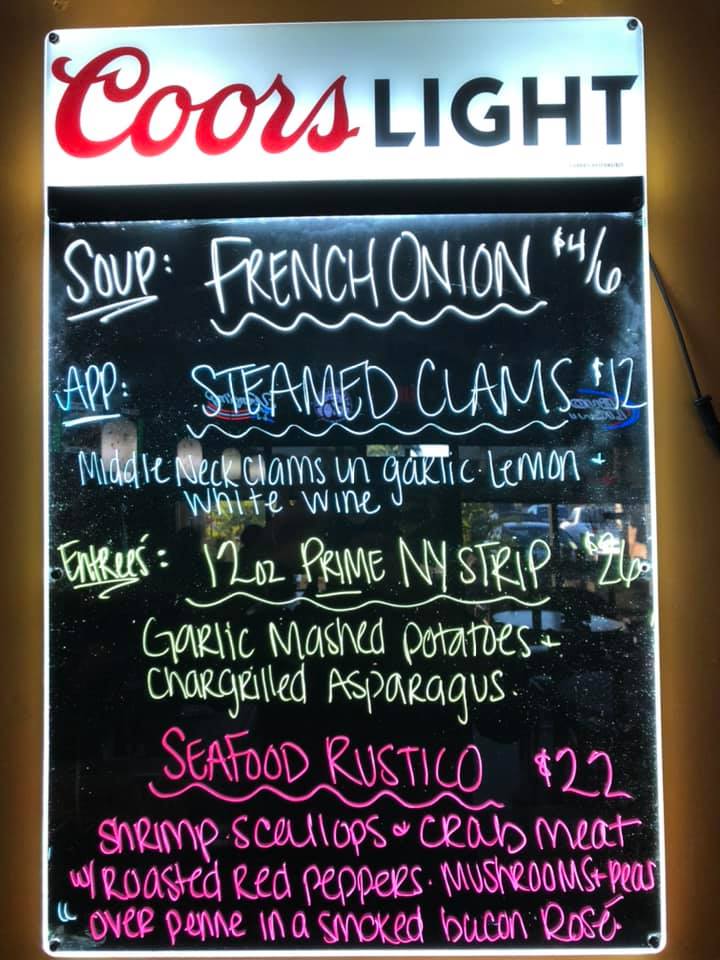 Coors LIGHT
SOUP: FRENCH ONION $4/6
APP: STEAMED CLAMS $12
Middle Neck clams in garlic lemon +
white wine
Entrees: 12oz PRIME NY STRIP $26
Garlic Mashed potatoes +
chargrilled Asparagus.
SEAFOOD RUSTICO $22
shrimp. scallops & crab meat
w/ Roasted Red peppers. MUSHROOMS + peas
over penne in a smoked bacon Rosé.